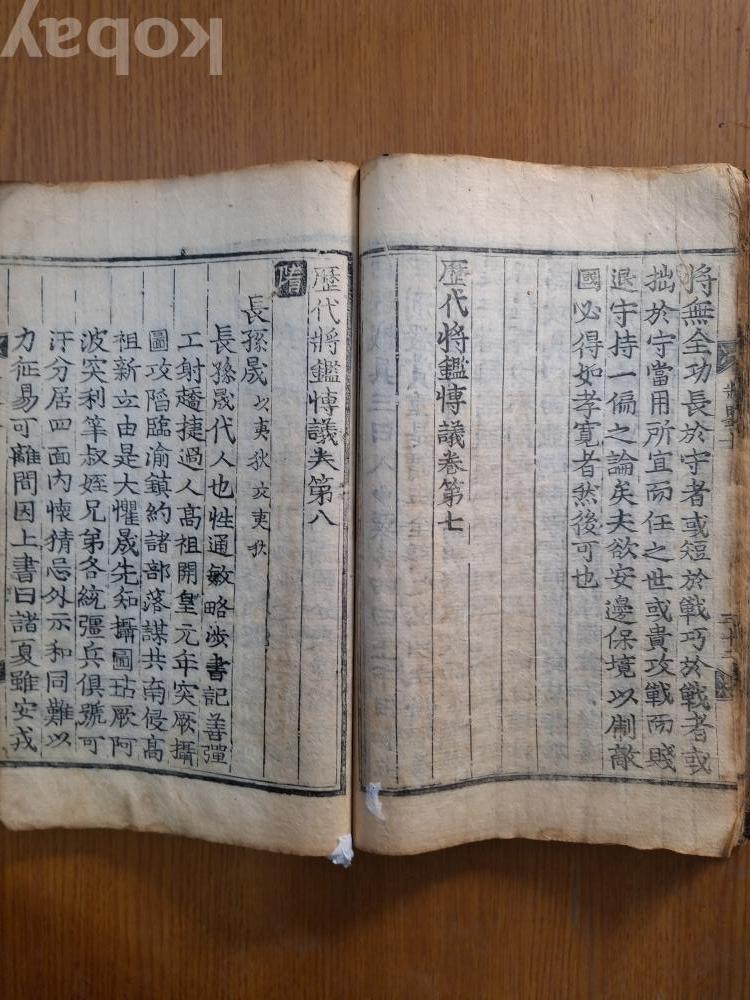 kobay
將無全功長於守者或短於戰巧於戰者或
拙於守當用所宜而任之世或貴攻戰而賤
退守持一偏之論矣夫欲安邊保境以制敵
國必得如孝寬者然後可也
歷代將鑑慱議卷第七
歷代將鑑慱議卷第八
隋
長孫晟 以夷狄攻夷狄
長孫晟代人也性通敏略涉書記善彈
工射趫捷過人高祖開皇元年突厥攝
圖攻陷臨渝鎮約諸部落謀共南侵高
祖新立由是大懼晟先知攝圖玷厥阿
波突利等叔姪兄弟各統彊兵俱號可
汗分居四面內懷猜忌外示和同難以
力征易可離間因上書曰諸夏雖安戎